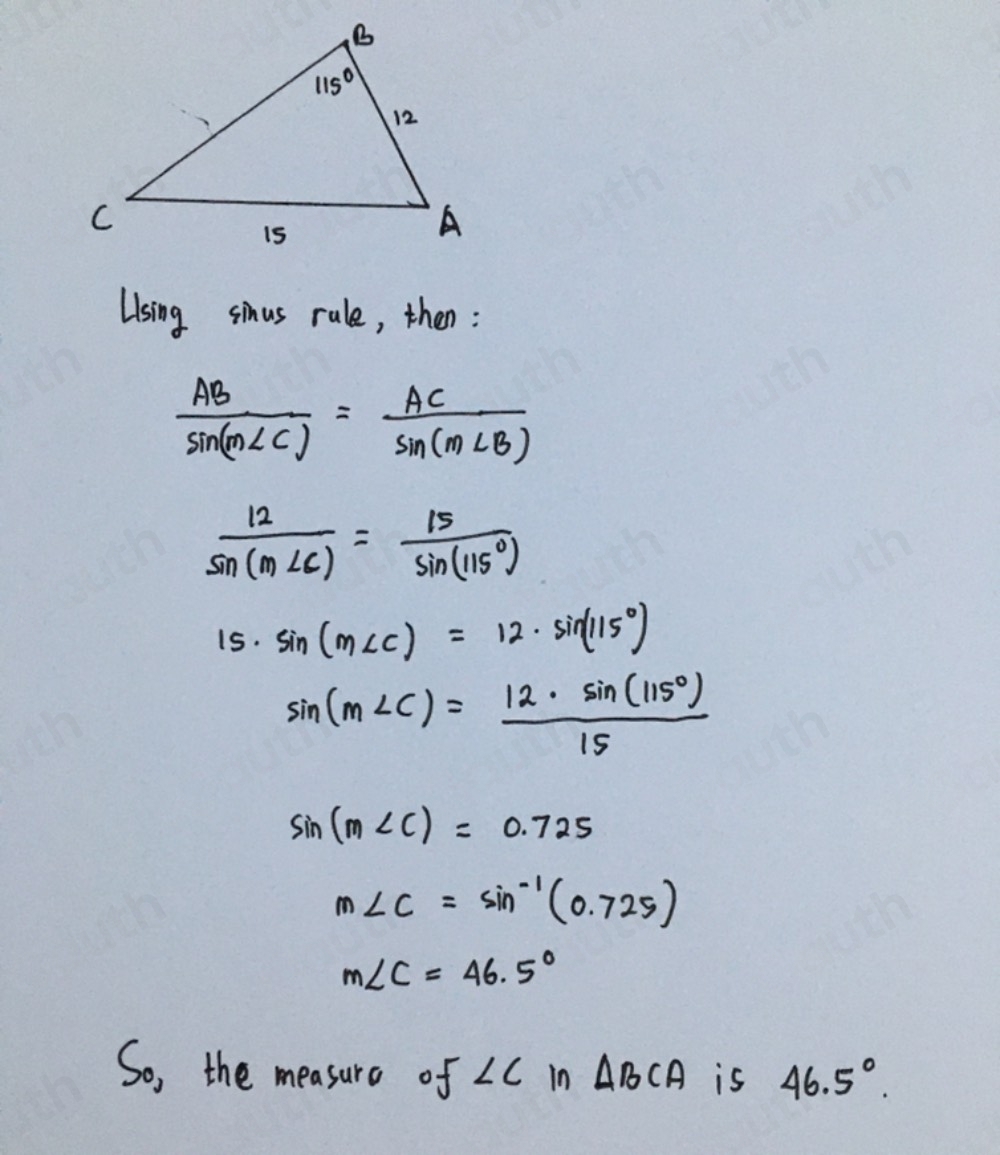 B
115°
12
C
A
15
Using sinus rule, then :
AB/sin(m∠C) = AC/sin(m∠B)
12/sin(m∠C) = 15/sin(115°)
15 · sin(m∠C) = 12 · sin(115°)
sin(m∠C) = 12 · sin(115°)/15
sin(m∠C) = 0.725
m∠C = sin⁻¹(0.725)
m∠C = 46.5°
So, the measure of ∠C in ΔBCA is 46.5°.